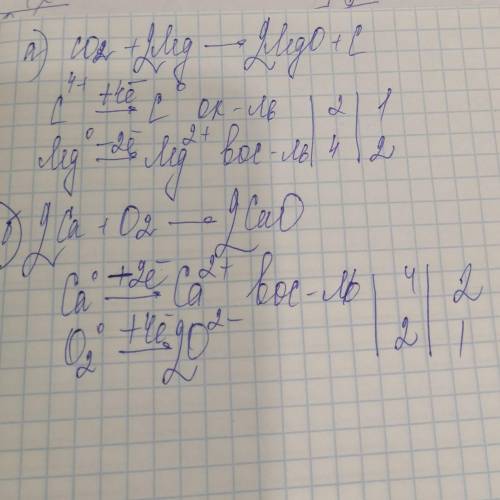 а) CO2 + 2Mg → 2MgO + C
C⁴⁺ +4ē → C⁰ ок-ль | 2 | 1
Mg⁰ -2ē → Mg²⁺ вос-ль | 4 | 2
б) 2Ca + O2 → 2CaO
Ca⁰ +2ē → Ca²⁺ вос-ль | 4 | 2
O2⁰ +4ē → 2O²⁻ | 2 | 1